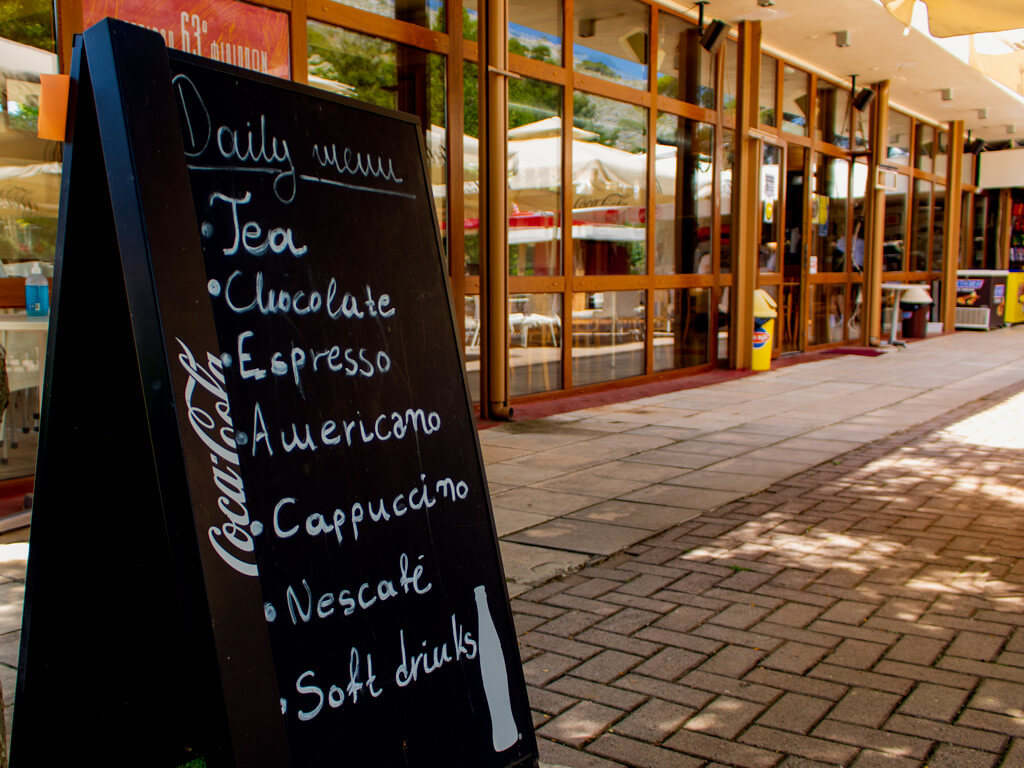 63°
ΦΙΛΙΠΠΩΝ
Daily menu
• Tea
• Chocolate
• Espresso
• Americano
• Cappuccino
• Nescafé
• Soft drinks
Coca-Cola